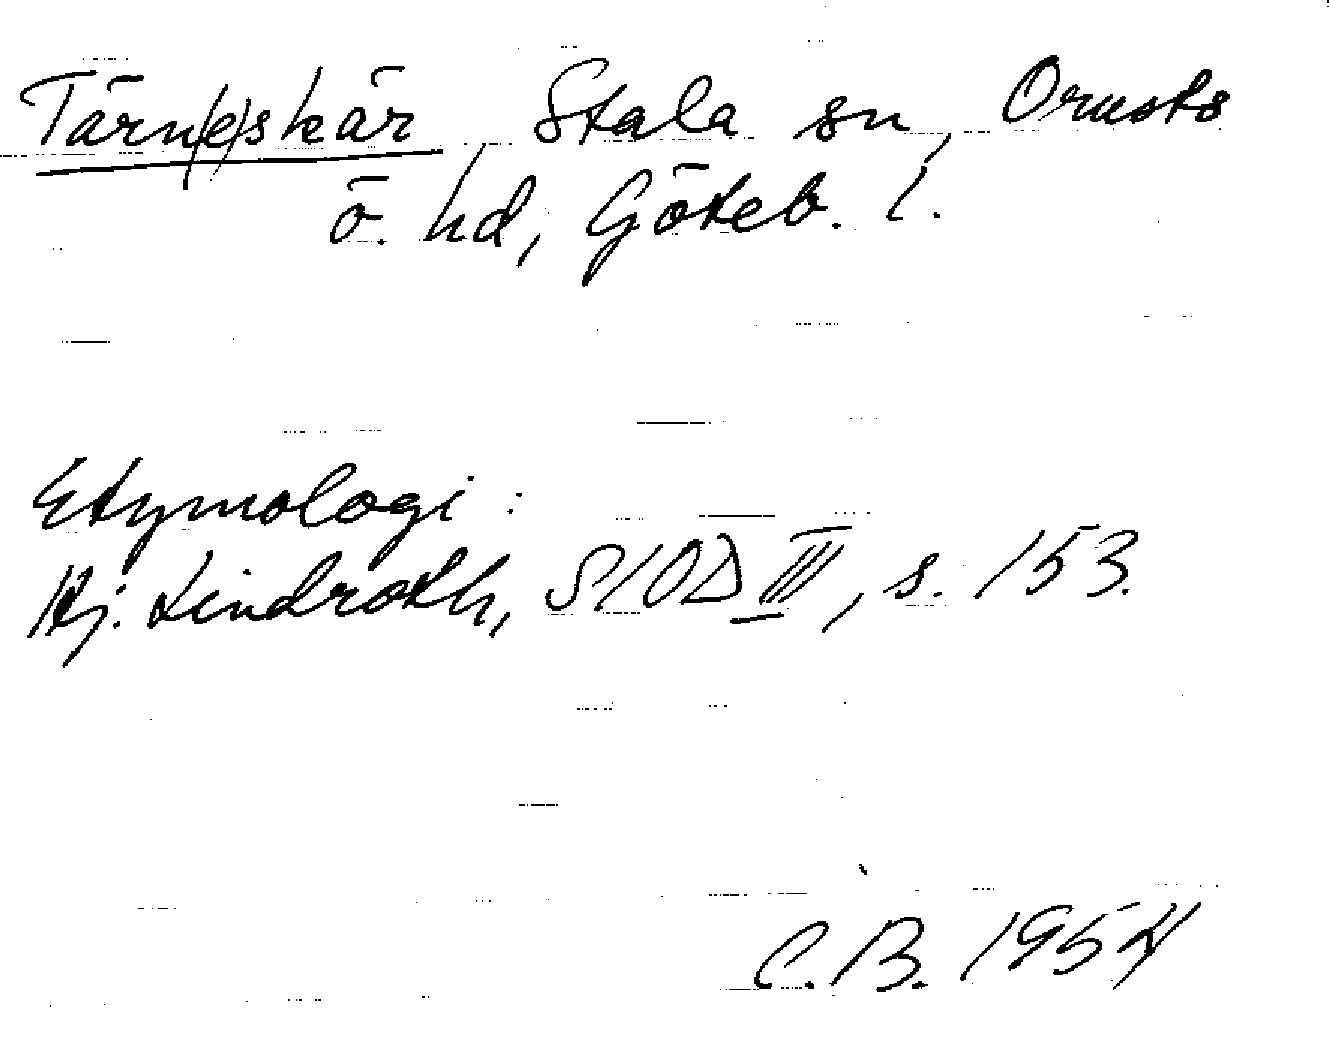 Tärn(e)skär, Stala sn, Orusts
ö. hd, Göteb. l.
Etymologi:
Hj. Lindroth, SIOD III, s. 153.
C.B. 1954